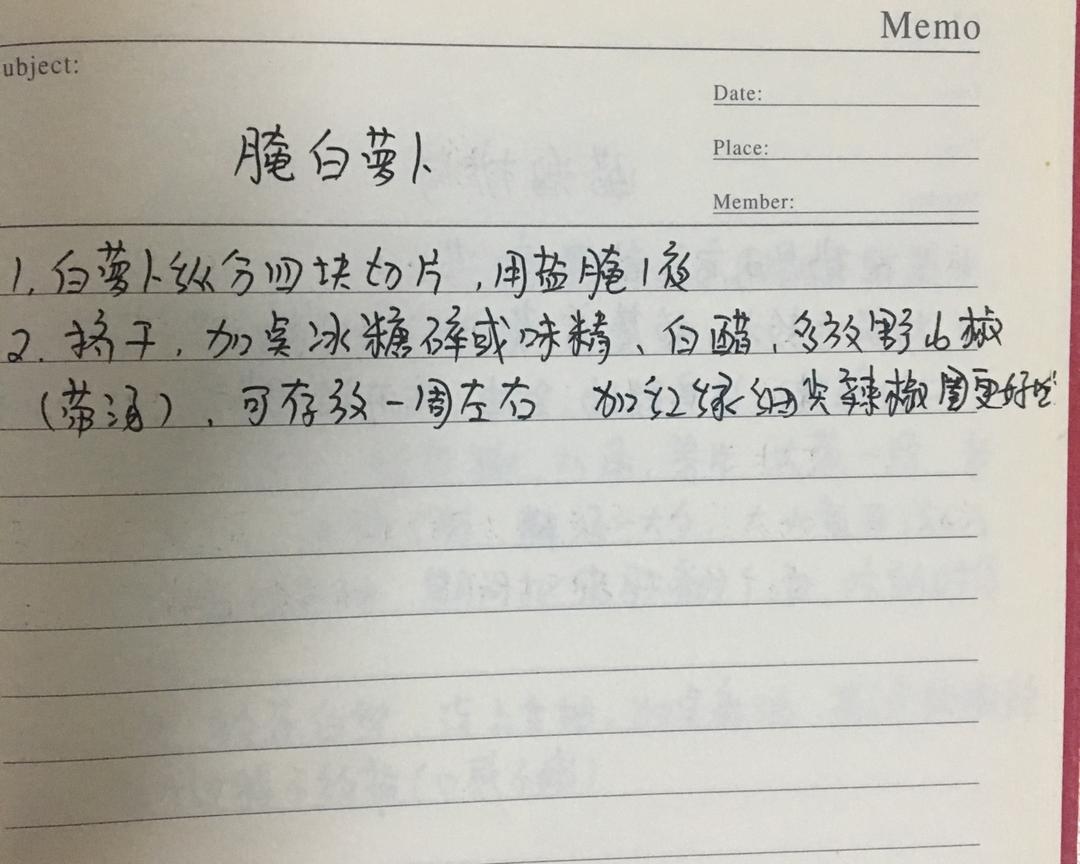 Memo
ubject:
Date:
腌白萝卜
Place:
Member:
1. 白萝卜纵分四块切片,用盐腌1夜
2. 挤干,加点冰糖碎或味精、白醋,多放野山椒
(带汤),可存放一周左右 加红绿细尖辣椒圈更好些